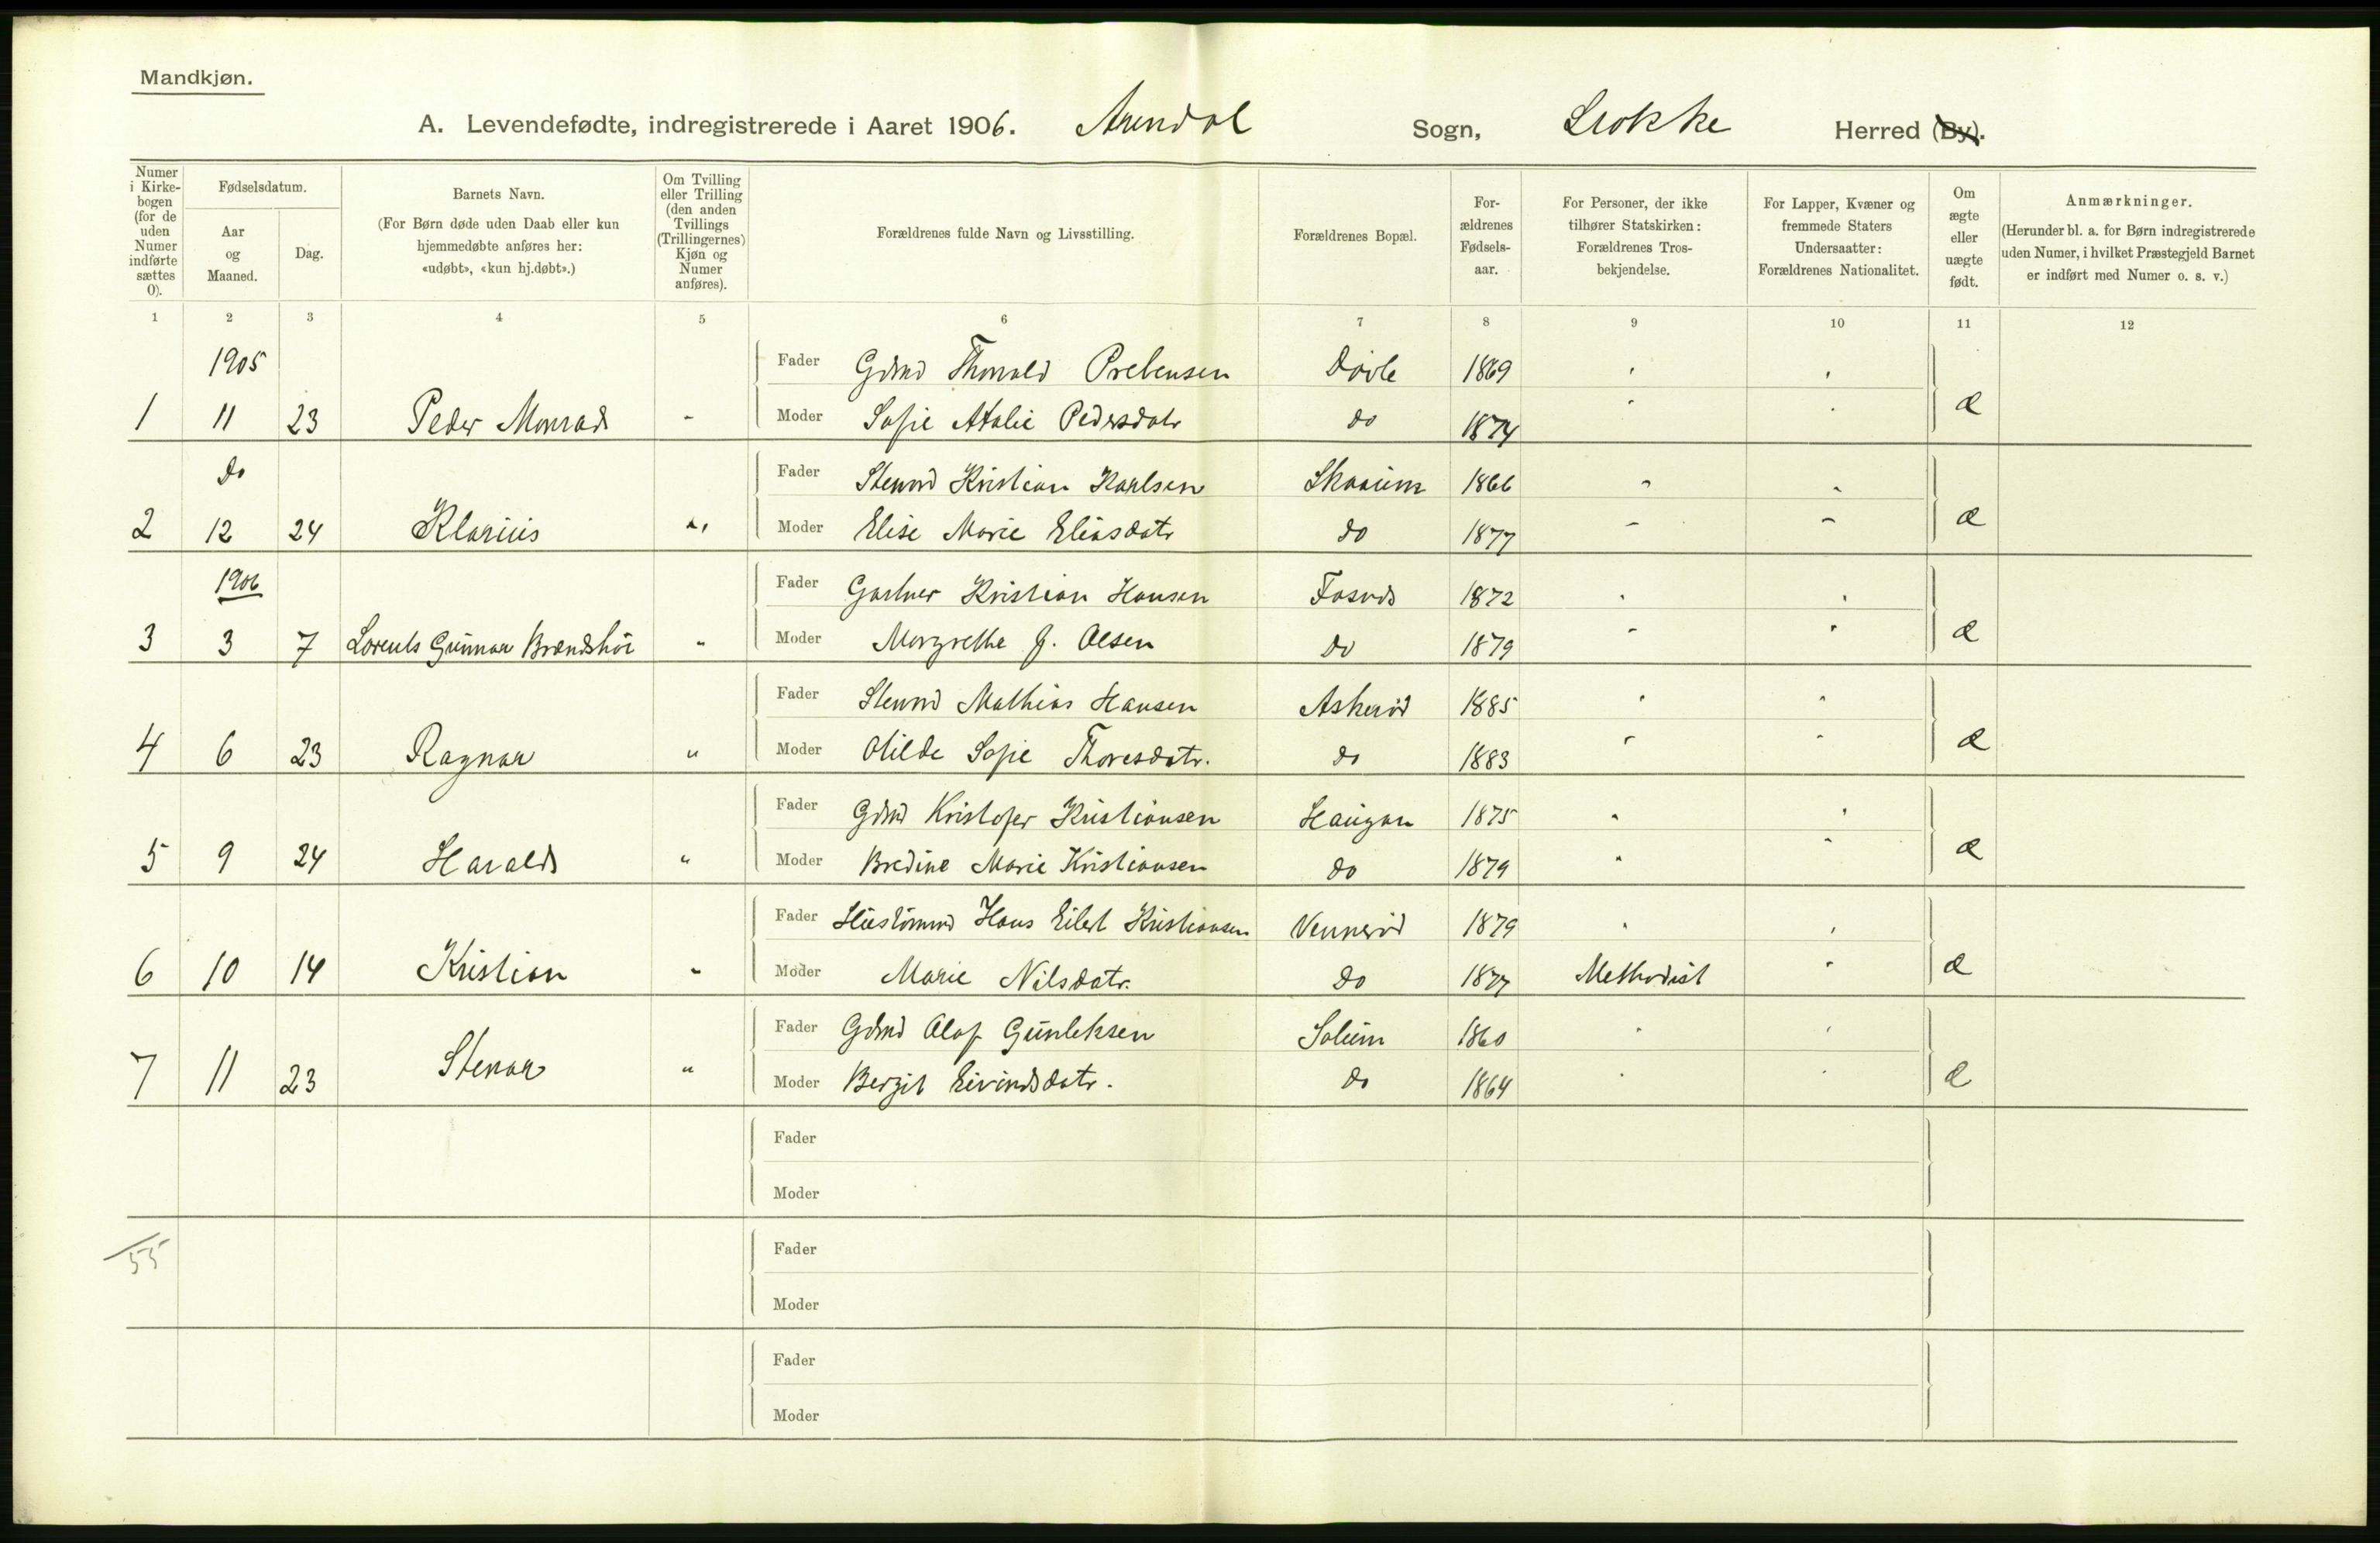 Mandkjøn.
A. Levendefødte, indregistrerede i Aaret 1906. Arendal Sogn, Herred (By).
Numer i Kirkebogen (for de uden Numer indførte sættes 0).
Fødselsdatum.
Aar og Maaned.
Dag.
Barnets Navn.
(For Børn døde uden Daab eller kun hjemmedøbte anføres her: «udøbt», «kun hj.døbt».)
Om Tvilling eller Trilling (den anden Tvillings (Trillingernes) Kjøn og Numer anføres).
Forældrenes fulde Navn og Livsstilling.
Forældrenes Bopæl.
Forældrenes Fødselsaar.
For Personer, der ikke tilhører Statskirken: Forældrenes Trosbekjendelse.
For Lapper, Kvæner og fremmede Staters Undersaatter: Forældrenes Nationalitet.
Om ægte eller uægte født.
Anmærkninger.
(Herunder bl. a. for Børn indregistrerede uden Numer, i hvilket Præstegjeld Barnet er indført med Numer o. s. v.)
1 2 3 4 5 6 7 8 9 10 11 12
1905 Fader Gdmd Thorvald Prebensen 1869
1 11 23 Peder Monrad - Moder Sofie Atalie Pedersdatr do 1874 æ
do Fader Kristian Karlsen Skaaum 1866
2 12 24 Klarius " Moder Elise Marie Eliasdatr do 1877 æ
1906 Fader Gartner Kristian Hansen 1872
3 3 7 Lorents Gunnar Brandshöi " Moder Margrethe J. Olsen do 1879 æ
Fader Mathias Hansen Askeröd 1885
4 6 23 Ragnar " Moder Otilde Sofie Thoresdatr. do 1883 æ
Fader Gdmd Kristofer Kristiansen Haugan 1875
5 9 24 Harald " Moder Bredine Marie Kristiansen do 1879 æ
Fader Hans Eilert Kristiansen Venneröd 1879
6 10 14 Kristian " Moder Marie Nilsdatr. do 1877 Methodist æ
Fader Gdmd Olaf Gunleksen Solum 1860
7 11 23 Stenar " Moder Bergit Eivindsdatr. do 1864 æ
Fader
Moder
55
Fader
Moder
Fader
Moder